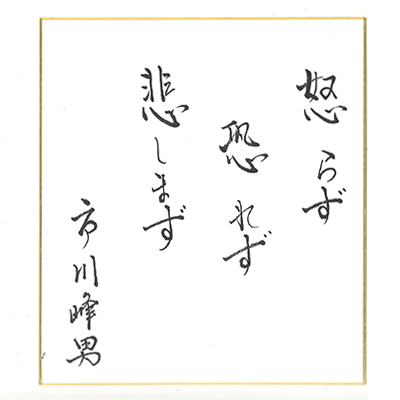 怒らず
恐れず
悲しまず
市川峰男